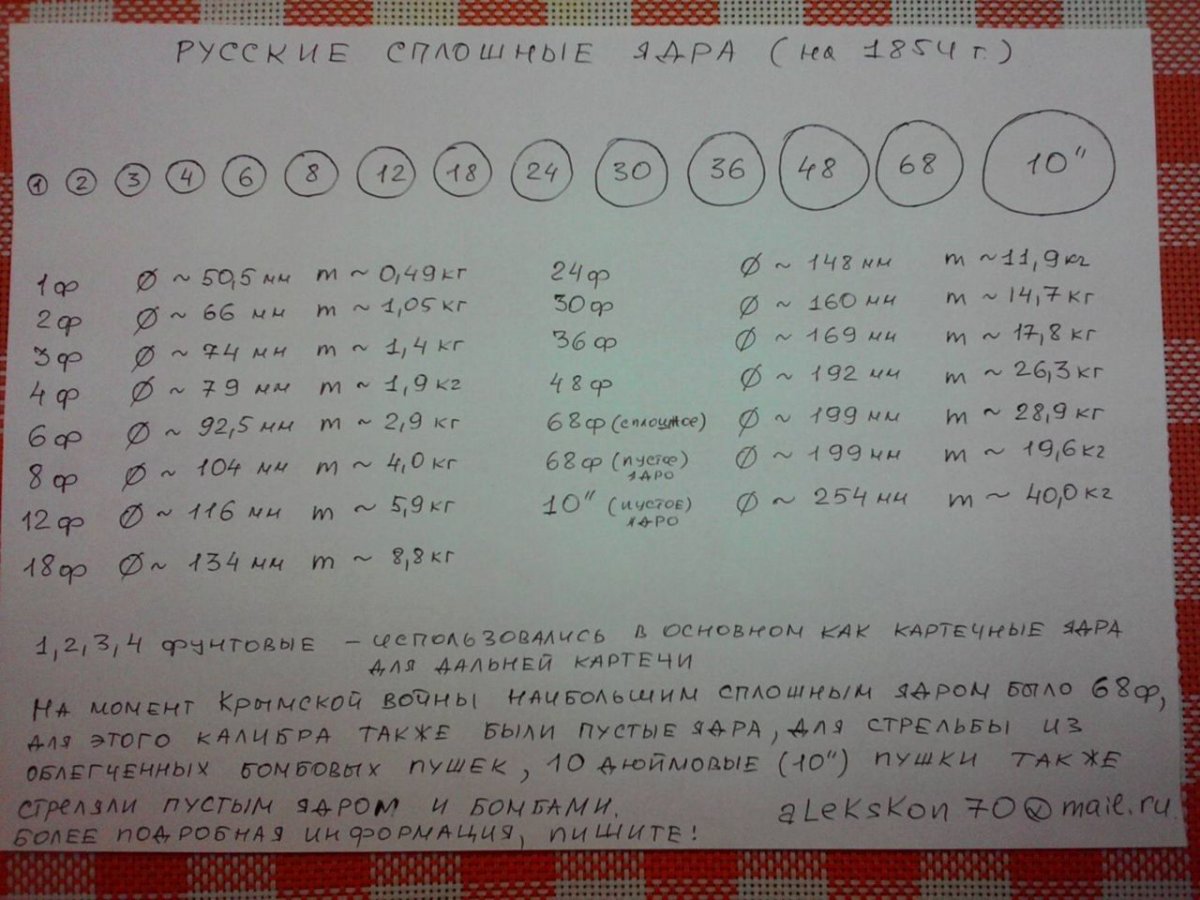 РУССКИЕ СПЛОШНЫЕ ЯДРА (на 1854 г.)
1 2 3 4 6 8 12 18 24 30 36 48 68 10"
1ф Ø ~ 50,5 мм m ~ 0,49 кг
2ф Ø ~ 66 мм m ~ 1,05 кг
3ф Ø ~ 74 мм m ~ 1,4 кг
4ф Ø ~ 79 мм m ~ 1,9 кг
6ф Ø ~ 92,5 мм m ~ 2,9 кг
8ф Ø ~ 104 мм m ~ 4,0 кг
12ф Ø ~ 116 мм m ~ 5,9 кг
18ф Ø ~ 134 мм m ~ 8,8 кг
24ф Ø ~ 148 мм m ~ 11,9 кг
30ф Ø ~ 160 мм m ~ 14,7 кг
36ф Ø ~ 169 мм m ~ 17,8 кг
48ф Ø ~ 192 мм m ~ 26,3 кг
68ф (сплошное) Ø ~ 199 мм m ~ 28,9 кг
68ф (пустое) Ø ~ 199 мм m ~ 19,6 кг
ЯДРО
10" (пустое) Ø ~ 254 мм m ~ 40,0 кг
ЯДРО
1,2,3,4 ФУНТОВЫЕ – ИСПОЛЬЗОВАЛИСЬ В ОСНОВНОМ КАК КАРТЕЧНЫЕ ЯДРА
ДЛЯ ДАЛЬНЕЙ КАРТЕЧИ
НА МОМЕНТ КРЫМСКОЙ ВОЙНЫ НАИБОЛЬШИМ СПЛОШНЫМ ЯДРОМ БЫЛО 68ф,
ДЛЯ ЭТОГО КАЛИБРА ТАКЖЕ БЫЛИ ПУСТЫЕ ЯДРА, ДЛЯ СТРЕЛЬБЫ ИЗ
ОБЛЕГЧЕННЫХ БОМБОВЫХ ПУШЕК, 10 ДЮЙМОВЫЕ (10") ПУШКИ ТАКЖЕ
СТРЕЛЯЛИ ПУСТЫМ ЯДРОМ И БОМБАМИ.
aLeksKon70@mail.ru
БОЛЕЕ ПОДРОБНАЯ ИНФОРМАЦИЯ, ПИШИТЕ!